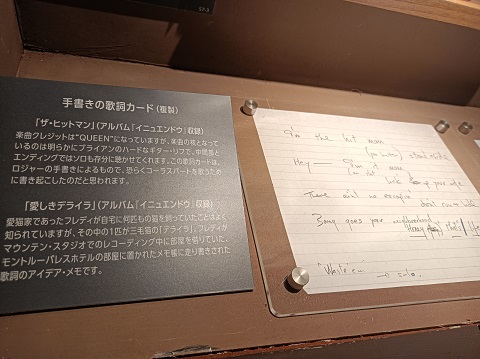 手書きの歌詞カード(複製)
「ザ・ヒットマン」(アルバム『イニュエンドウ』収録)
楽曲クレジットは“QUEEN”になっていますが、楽曲の核となって
いるのは明らかにブライアンのハードなギター・リフで、中間部と
エンディングではソロも存分に聴かせてくれます。この歌詞カードは、
ロジャーの手書きによるもので、恐らくコーラスパートを歌うため
に書き起こしたのだと思われます。
「愛しきデライラ」(アルバム『イニュエンドウ』収録)
愛猫家であったフレディが自宅に何匹もの猫を飼っていたことはよく
知られていますが、その中の1匹が三毛猫の「デライラ」。フレディが
マウンテン・スタジオでのレコーディング中に部屋を借りていた、
モントルーパレスホテルの部屋に置かれたメモ帳に走り書きされた
歌詞のアイデア・メモです。
I'm the hit man
Hey
There ain't no escape
Bang goes your neighbourhood
"Waste" em
solo.